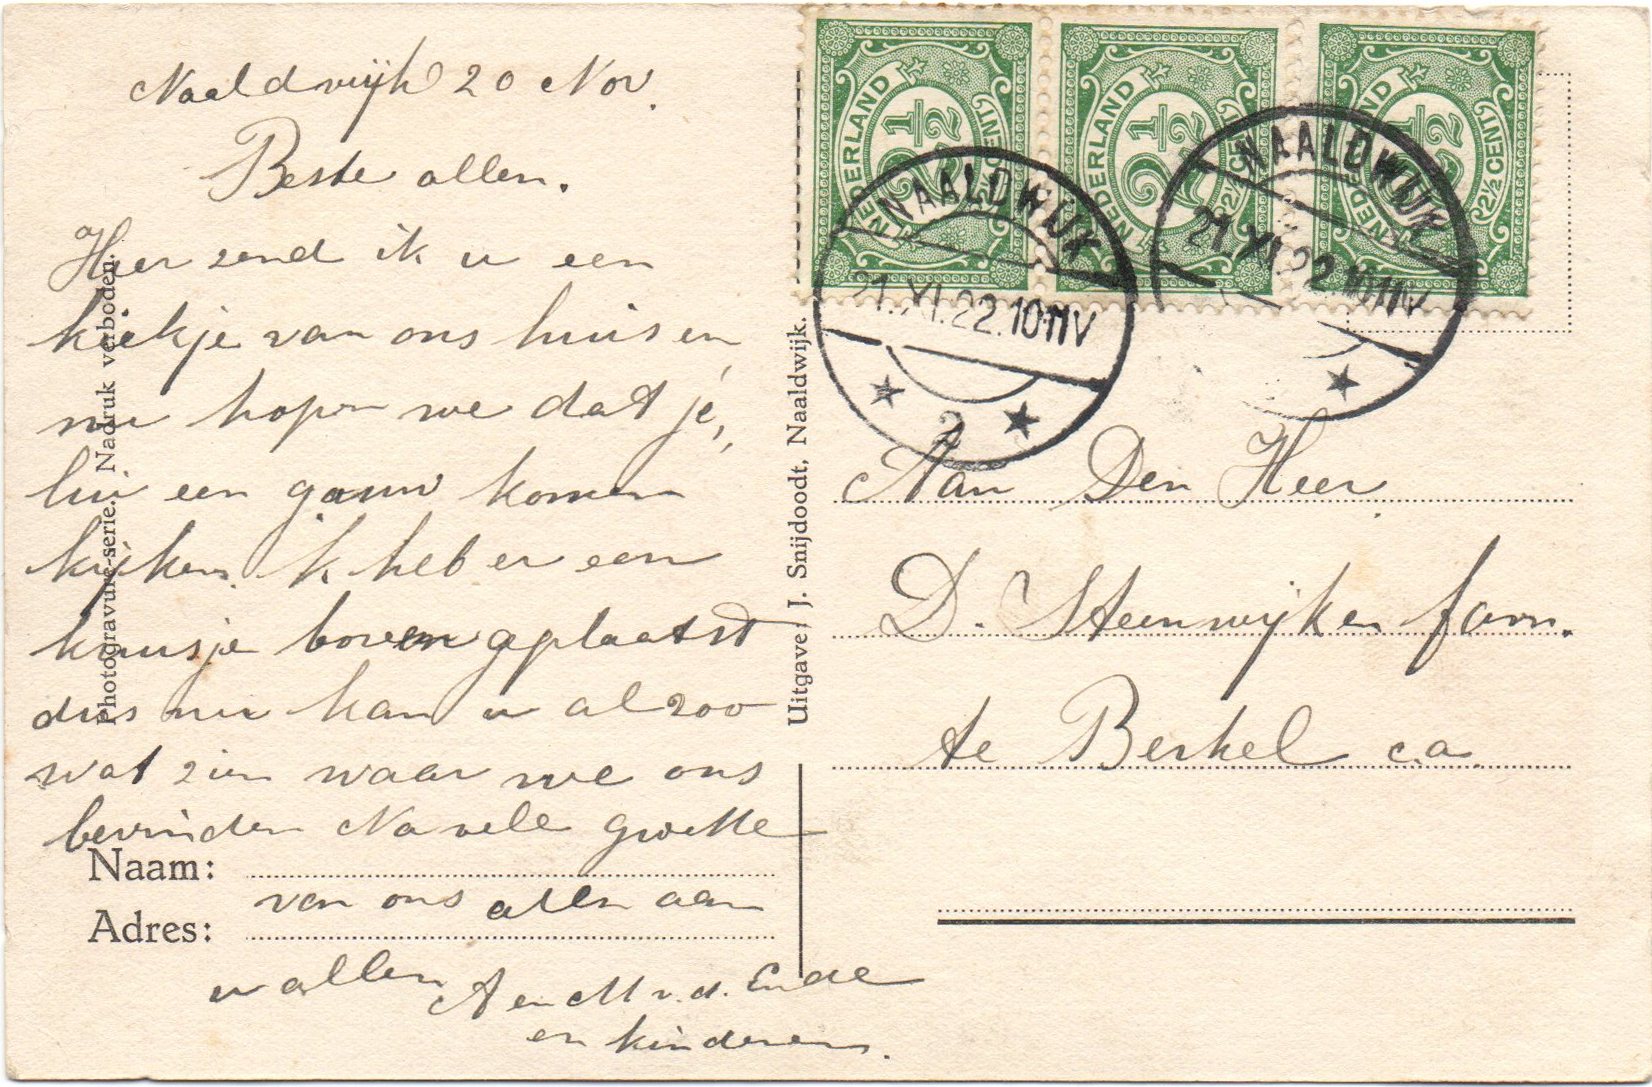 Naaldwijk 20 Nov.
Beste allen.
Hier zend ik u een
kiekje van ons huis en
nu hopen we dat je,,
lui een gauw komen
kijken. ik heb er een
kruisje boven geplaatst
dus nu kan u al zoo
wat zien waar we ons
bevinden Na vele groette
van ons allen aan
u allen A en M v. d. Ende
en kinderen.
Naam:
Adres:
Photogravure-serie. Nadruk verboden.
Uitgave: J. Snijdoodt, Naaldwijk.
NEDERLAND 2½ CENT
NEDERLAND 2½ CENT
NEDERLAND 2½ CENT
NAALDWIJK
21.XI.22.10-11V
2
NAALDWIJK
21.XI.22.10-11V
Aan Den Heer
D. Steenwijker fam.
te Berkel c.a.